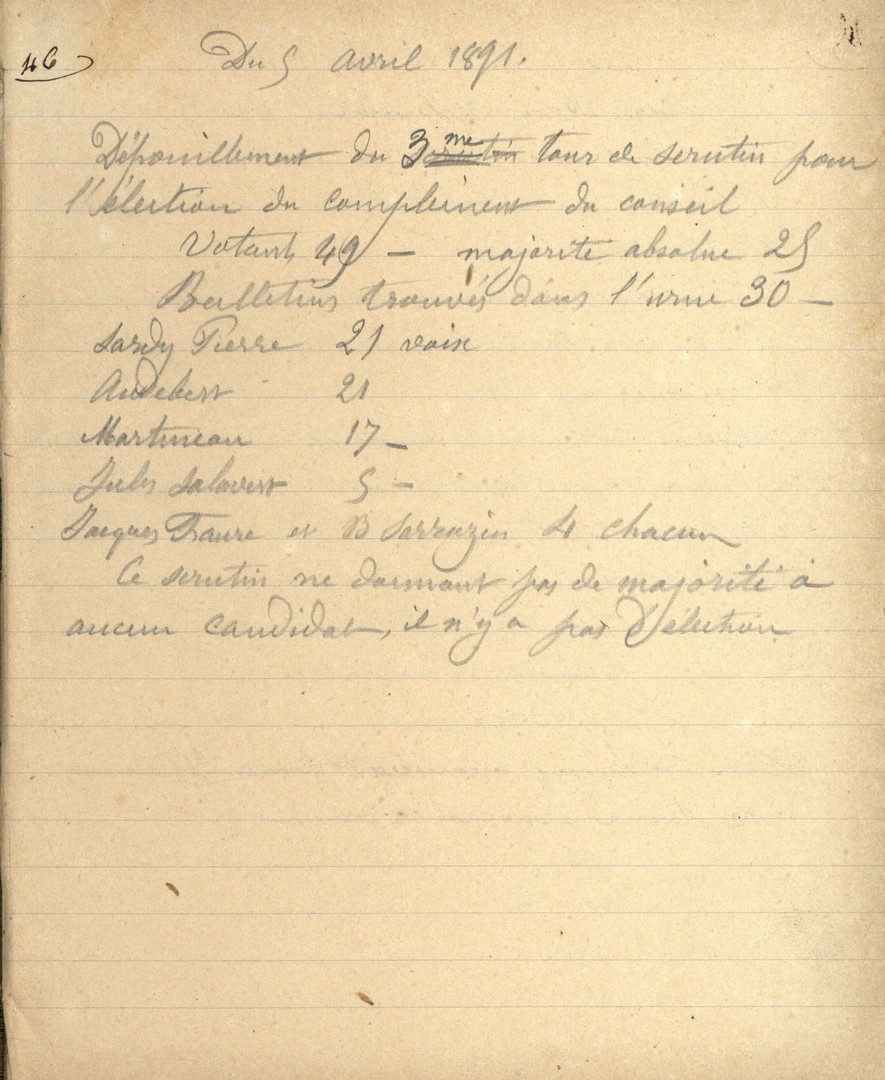 46
Du 5 avril 1891.
Dépouillement du 3me tour de scrutin pour
l'élection du complément du conseil
Votants 49 — majorité absolue 25
Bulletins trouvés dans l'urne 30 —
Sardy Pierre 21 voix
Audebert 21
Martineau 17 —
Jules Salavert 5 —
Jacques Faure et B Sarrazin 4 chacun
Ce scrutin ne donnant pas de majorité à
aucun candidat, il n'y a pas d'élection